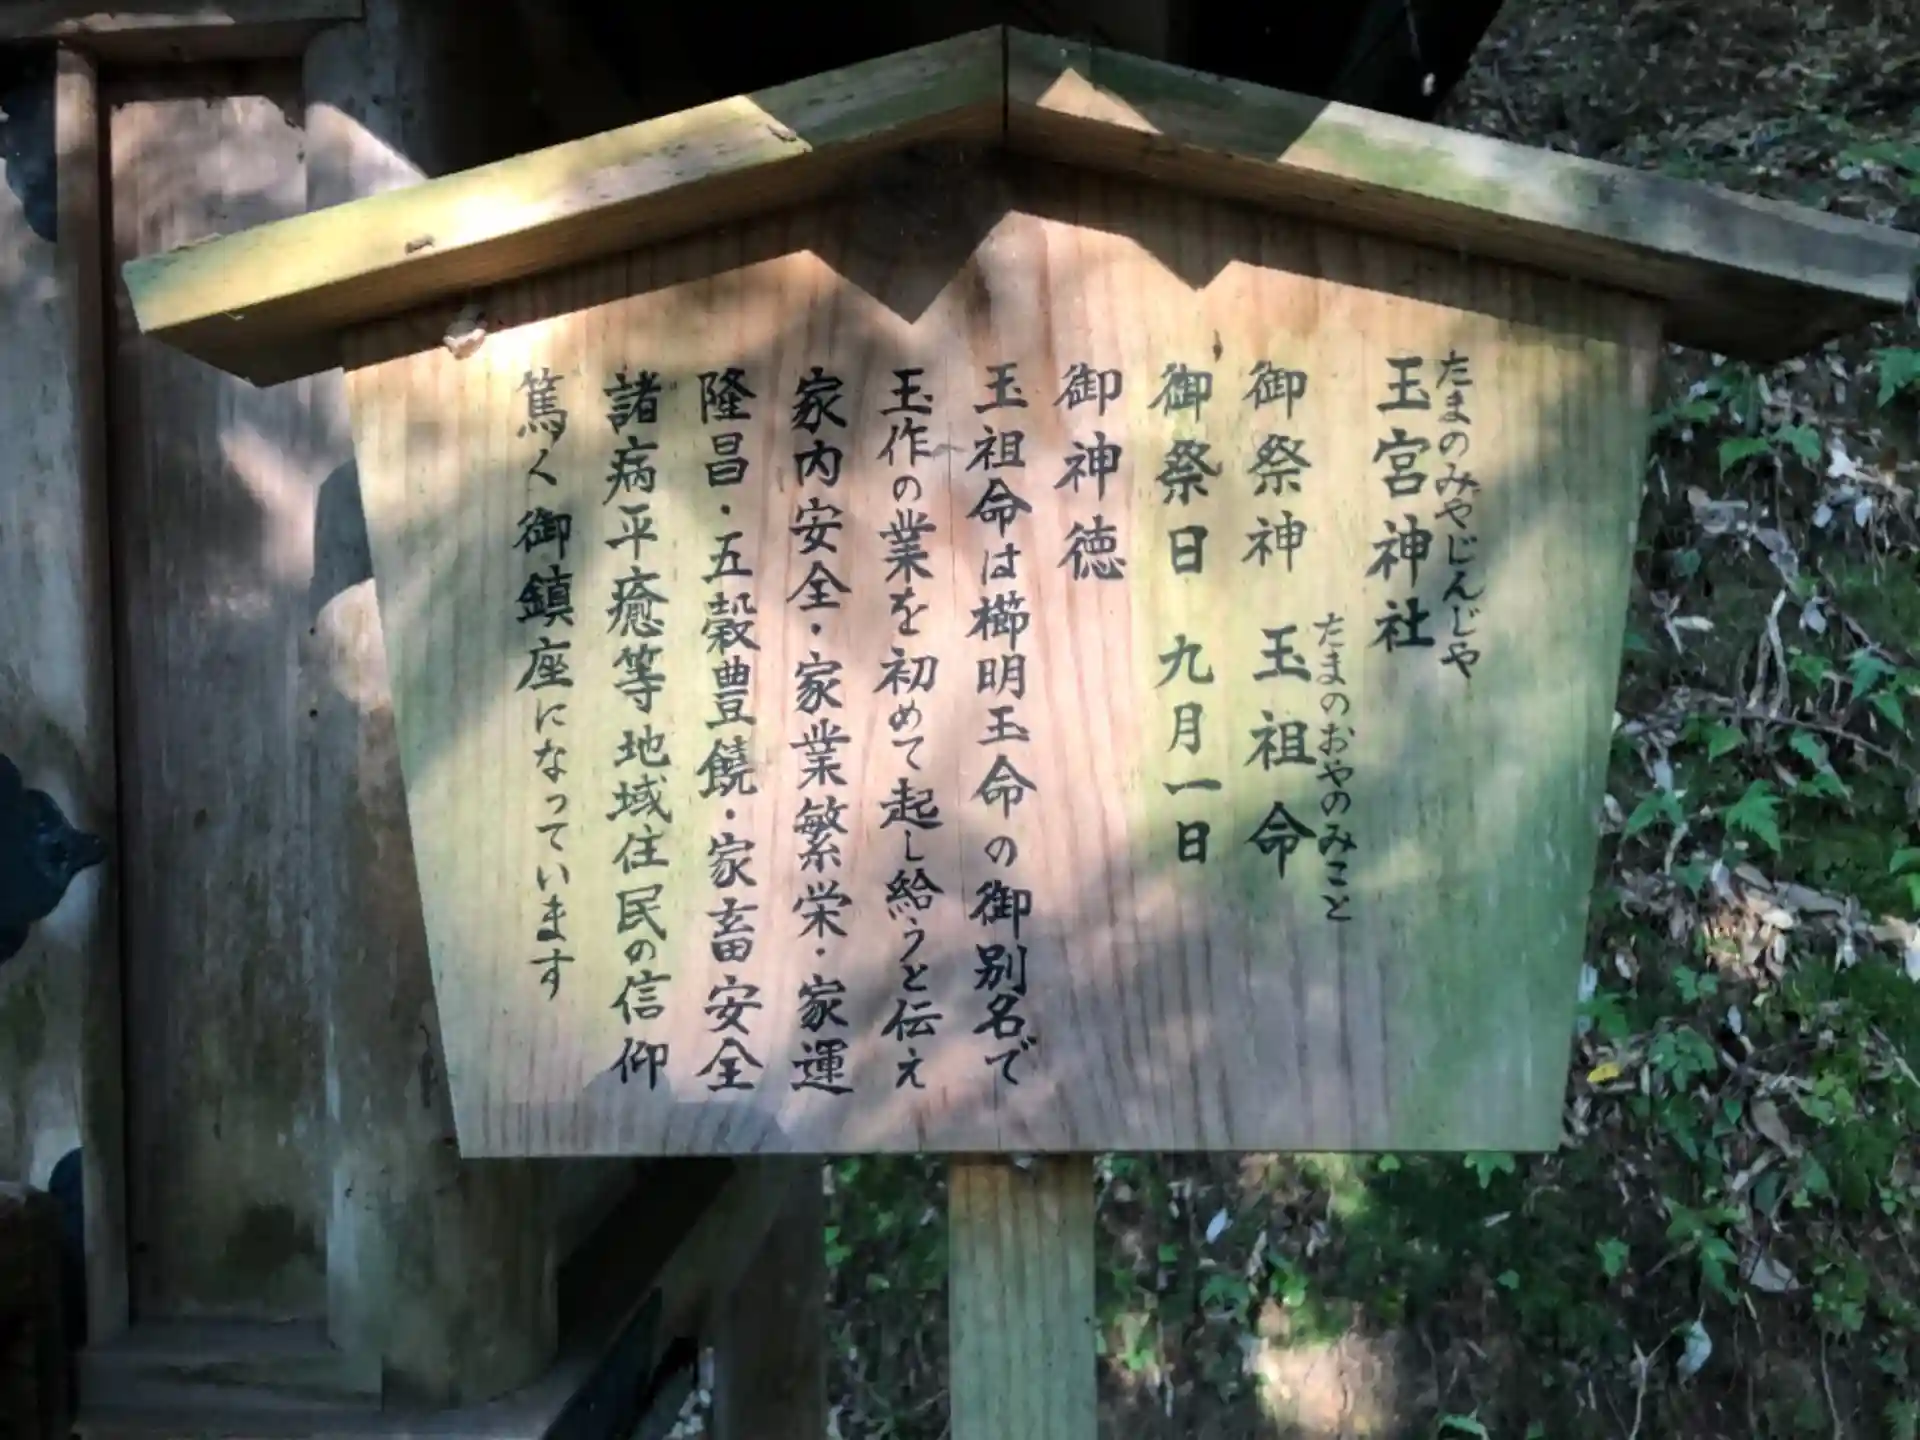 たまのみやじんじゃ
玉宮神社
たまのおやのみこと
御祭神 玉祖命
御祭日 九月一日
御神徳
玉祖命は櫛明玉命の御別名で
玉作の業を初めて起し給うと伝え
家内安全・家業繁栄・家運
隆昌・五穀豊饒・家畜安全
諸病平癒等地域住民の信仰
篤く御鎮座になっています